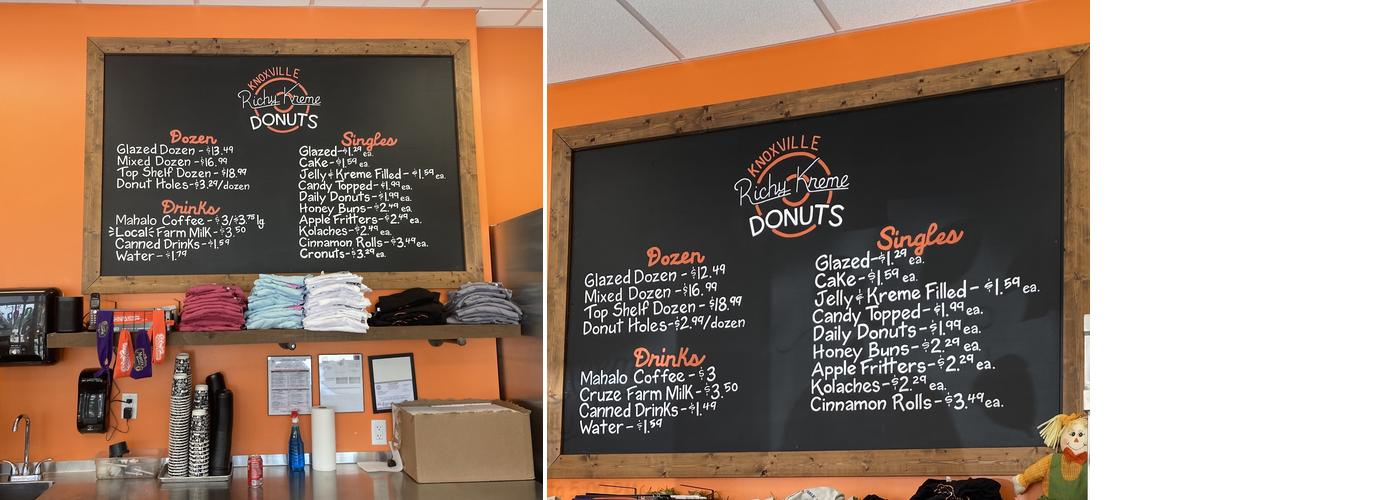 KNOXVILLE
Richy Kreme
DONUTS
Dozen
Glazed Dozen - $13.49
Mixed Dozen - $16.99
Top Shelf Dozen - $18.99
Donut Holes - $3.29/dozen
Drinks
Mahalo Coffee - $3/$3.75 lg
Local Farm Milk - $3.50
Canned Drinks - $1.59
Water - $1.79
Singles
Glazed - $1.29 ea.
Cake - $1.59 ea.
Jelly & Kreme Filled - $1.59 ea.
Candy Topped - $1.99 ea.
Daily Donuts - $1.99 ea.
Honey Buns - $2.49 ea.
Apple Fritters - $2.49 ea.
Kolaches - $2.49 ea.
Cinnamon Rolls - $3.49 ea.
Cronuts - $3.29 ea.
KNOXVILLE
Richy Kreme
DONUTS
Dozen
Glazed Dozen - $12.49
Mixed Dozen - $16.99
Top Shelf Dozen - $18.99
Donut Holes - $2.99/dozen
Drinks
Mahalo Coffee - $3
Cruze Farm Milk - $3.50
Canned Drinks - $1.49
Water - $1.59
Singles
Glazed - $1.29 ea.
Cake - $1.59 ea.
Jelly & Kreme Filled - $1.59 ea.
Candy Topped - $1.99 ea.
Daily Donuts - $1.99 ea.
Honey Buns - $2.29 ea.
Apple Fritters - $2.29 ea.
Kolaches - $2.29 ea.
Cinnamon Rolls - $3.49 ea.